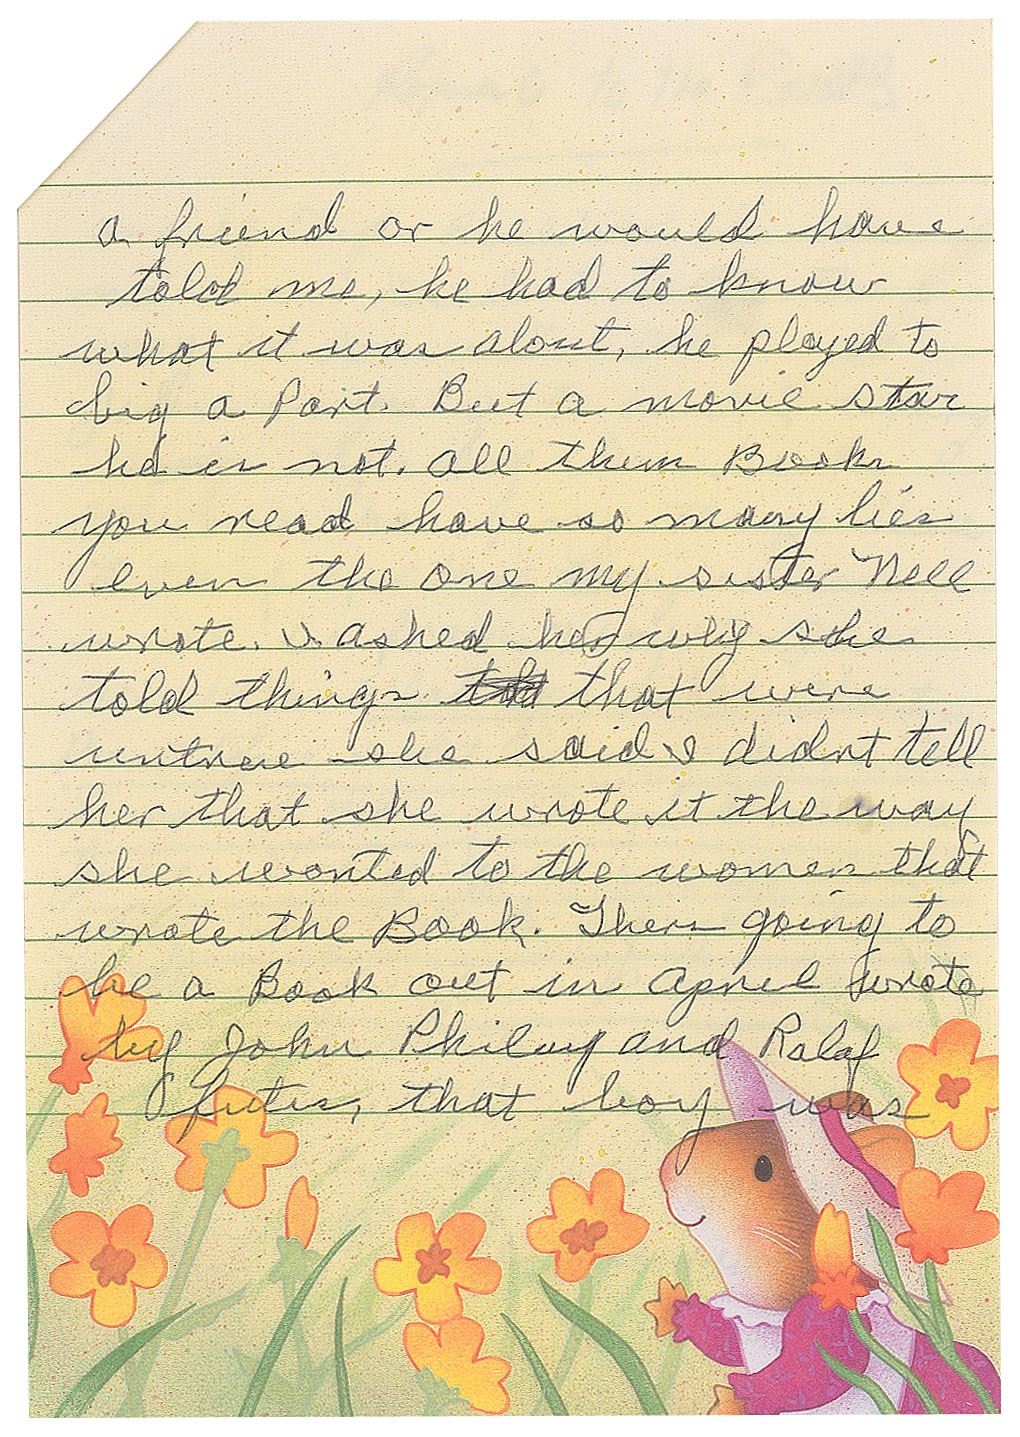 a friend or he would have
told me, he had to know
what it was about, he played to
big a Part. But a movie star
he is not. all them Books
you read have so many lies
even the one my sister Nell
wrote. I asked her why she
told things that were
untrue she said I didnt tell
her that she wrote it the way
she wanted to the women that
wrote the Book. Thers going to
be a Book out in April wrote
by John Philay and Ralaf
futes, that boy was